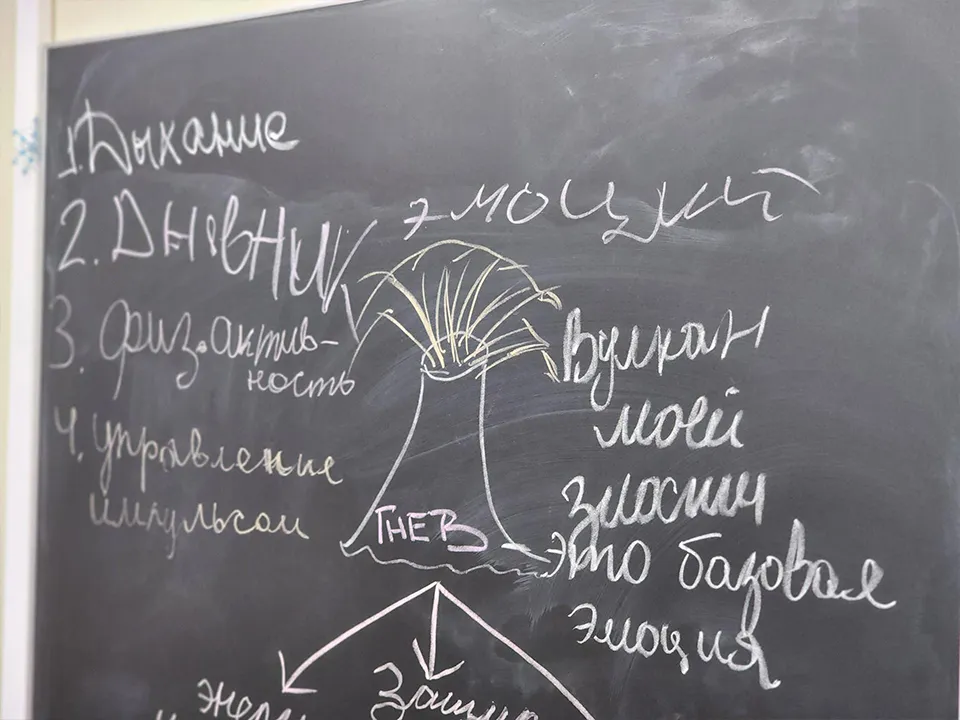 1. Дыхание
2. Дневник эмоций
3. физ. актив-
ность
4. управление
импульсом
Вулкан
моей
злости
это базовая
эмоция
ГНЕВ